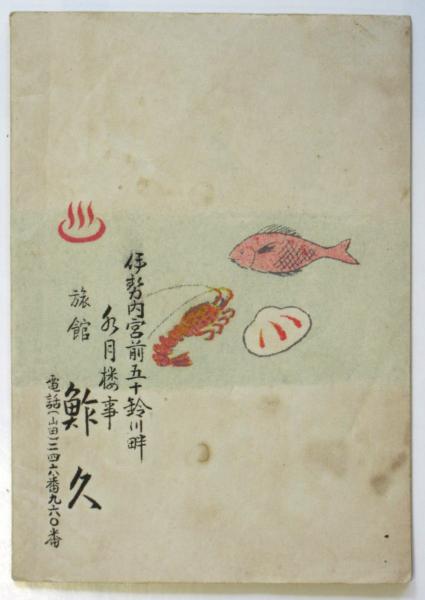 伊勢内宮前五十鈴川畔
水月楼事
旅館 鮓久
電話(山田)二四六番九六〇番